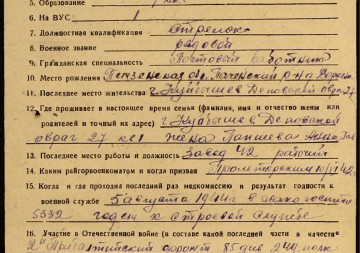 5. Образование
6. На ВУС 1
7. Должностная квалификация стрелок
8. Военное звание рядовой
9. Гражданская специальность работник
10. Место рождения Пензенская обл. Пачелмский р-н
11. Последнее место жительства г. Куйбышев овраг 27
12. Где проживает в настоящее время семья (фамилия, имя и отчество жены или
родителей и точный их адрес) г. Куйбышев
овраг 27 кв 1 жена
13. Последнее место работы и должность Завод 42 рабочий
14. Каким райгорвоенкоматом и когда призван Пролетарским
15. Когда и где проходил последний раз медкомиссию и результат годности к
военной службе 5 августа 1944г в эвакогоспитале
5332 годен к строевой службе
16. Участие в Отечественной войне (в составе какой последней части и в качестве
2й Прибалтийский фронт 85 див 249 полк